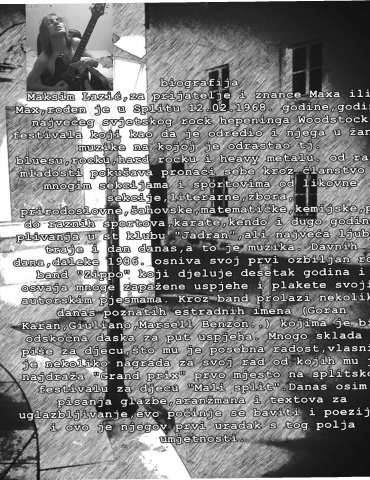 biografija
Maksim Lazić,za prijatelje i znance Maxa ili
Max,rođen je u Splitu 12.02.1968. godine,godin
najvećeg svjetskog rock hepeninga Woodstock
festivala koji kao da je odredio i njega u žan
muzike na kojoj je odrastao tj.
bluesu,rocku,hard rocku i heavy metalu. od ra
mladosti pokušava pronaći sebe kroz članstvo
mnogim sekcijama i sportovima od likovne
sekcije,literarne,zbora,
prirodoslovne,šahovske,matematičke,kemijske,p
do raznih sportova,karate,kendo i dugo godin
plivanja u st klubu "Jadran",ali najveća ljub
traje i dan danas, a to je,muzika. Davnih
dana,daleke 1986. osniva svoj prvi ozbiljan ro
band "Zippo" koji djeluje desetak godina i
osvaja mnoge zapažene uspjehe i plakete svoji
autorskim pjesmama. Kroz band prolazi nekolik
danas poznatih estradnih imena (Goran
Karan,Giuliano,Marsell Benzon..) kojima je bi
odskočna daska za put uspjeha. Mnogo sklada
piše za djecu,što mu je posebna radost,vlasni
je nekoliko nagrada za svoj rad od kojih mu j
najdraža "Grand prix" prvo mjesto na splitsko
festivalu za djecu "Mali split".Danas osim
pisanja glazbe,aranžmana i textova za
uglazbljivanje,evo počinje se baviti i poezij
i ovo je njegov prvi uradak s tog polja
umjetnosti.